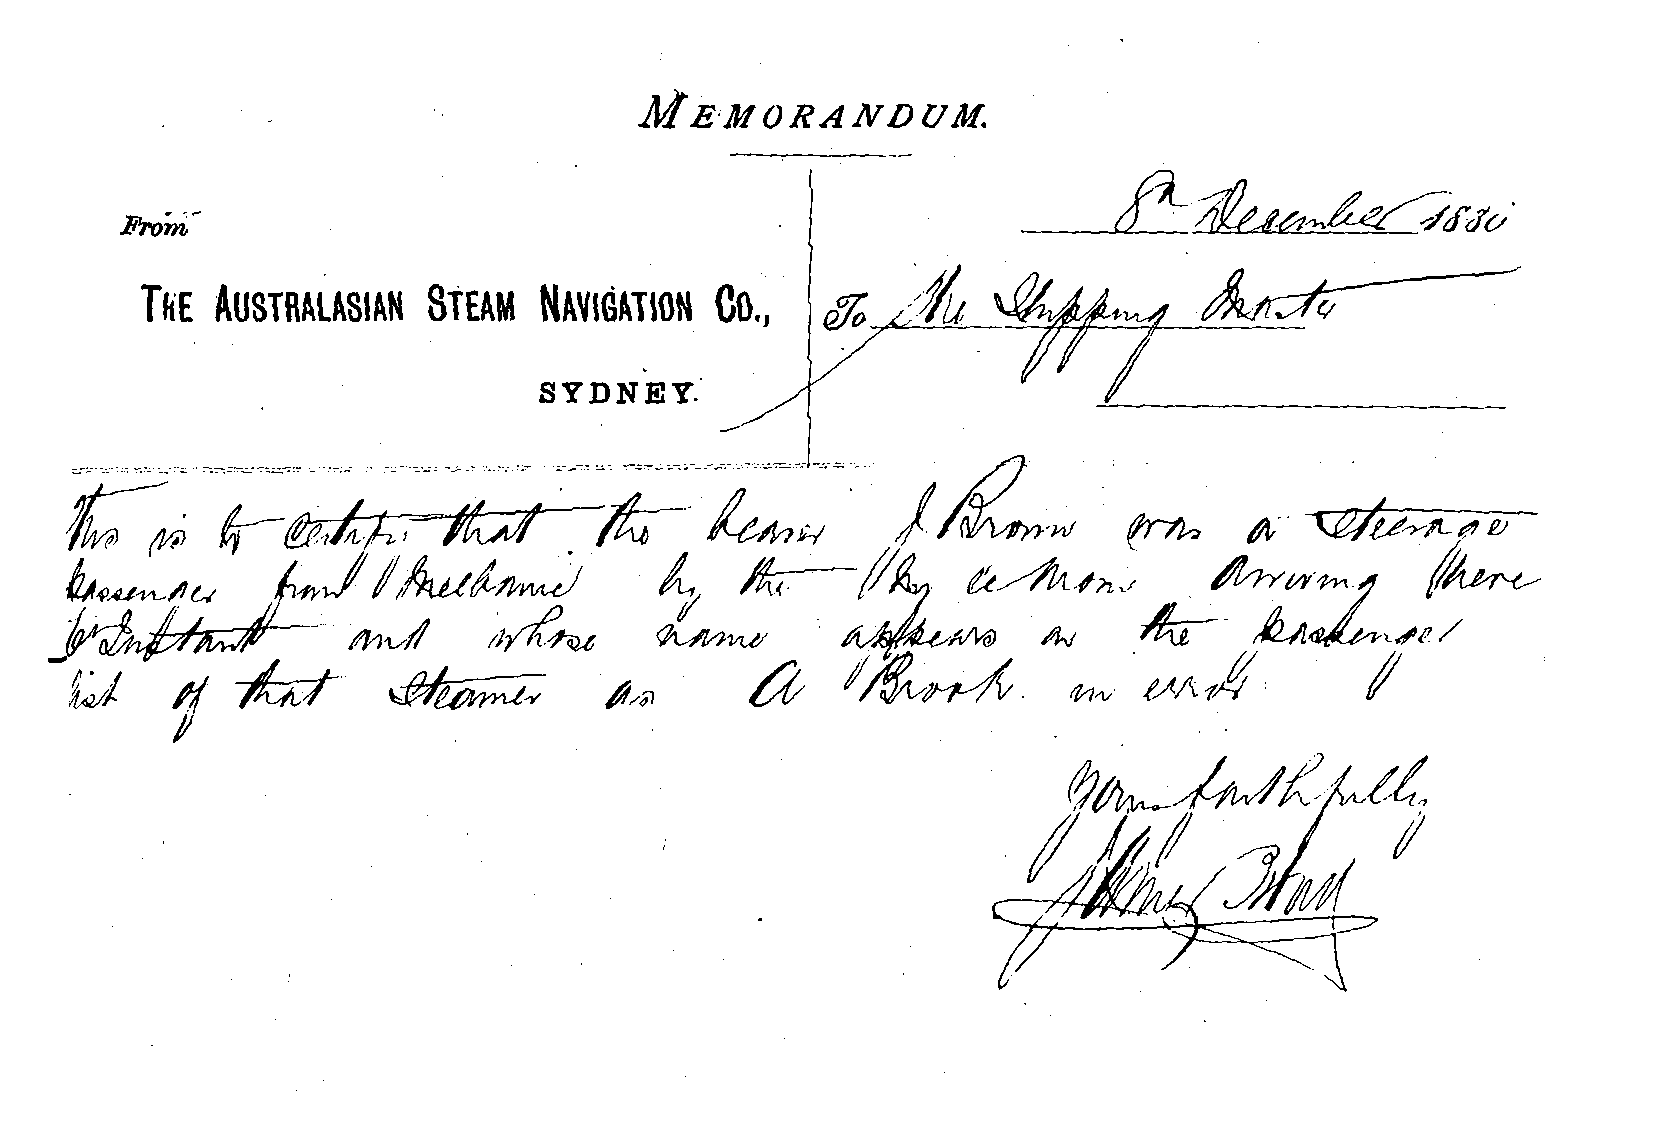 MEMORANDUM.
8th December 1880
From
THE AUSTRALASIAN STEAM NAVIGATION CO.,
To The Shipping Master
SYDNEY.
This is to certify that the bearer J Brown was a Steerage
passenger from Melbourne by the arriving here
Instant and whose name appears on the passenger
list of that Steamer as A Brook in error
Yours faithfully